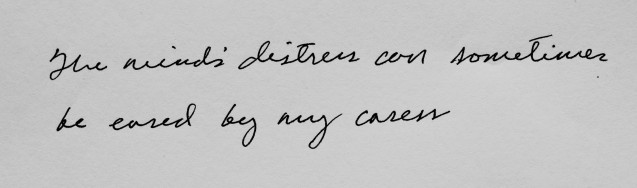 The mind's distress can sometimes
be eased by my caress